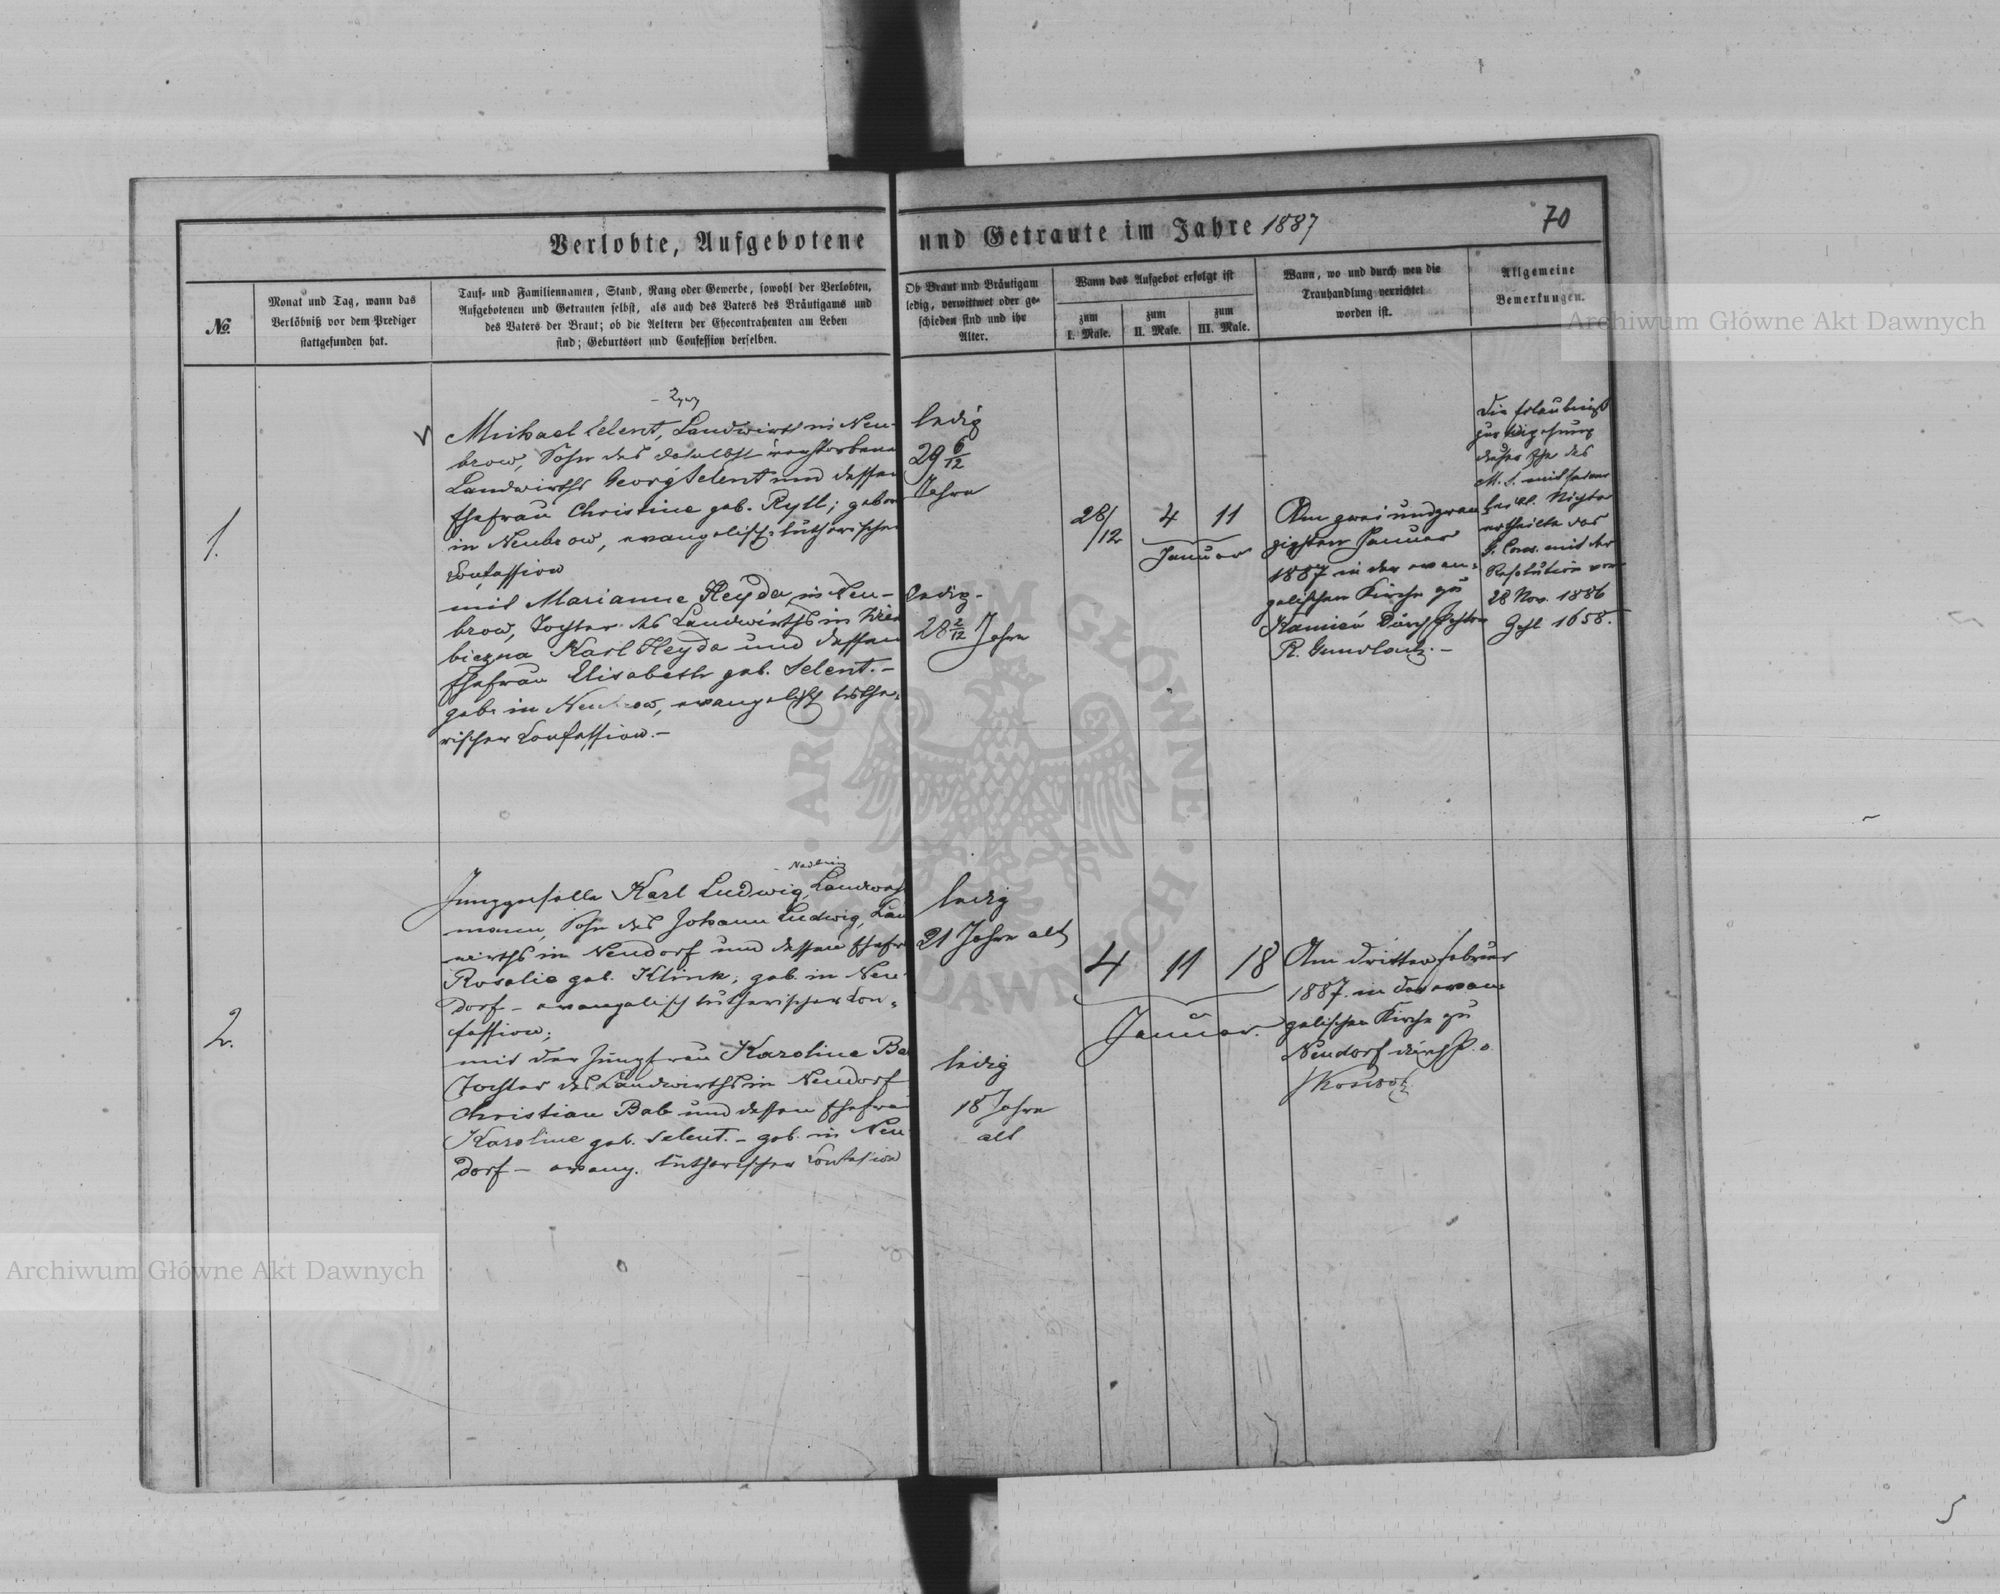 Verlobte, Aufgebotene und Getraute im Jahre 1887
70
№
Monat und Tag, wann das
Verlöbniß vor dem Prediger
stattgefunden hat.
Tauf- und Familiennamen, Stand, Rang oder Gewerbe, sowohl der Verlobten,
Aufgebotenen und Getrauten selbst, als auch des Vaters des Bräutigams und
des Vaters der Braut; ob die Aeltern der Ehecontrahenten am Leben
sind; Geburtsort und Confession derselben.
Ob Braut und Bräutigam
ledig, verwittwet oder ge-
schieden sind und ihr
Alter.
Wann das Aufgebot erfolgt ist
zum
I. Male.
zum
II. Male.
zum
III. Male.
Wann, wo und durch wen die
Trauhandlung verrichtet
worden ist.
Allgemeine
Bemerkungen.
1.
Michael Selent, Landwirth in Neu-
brow, Sohn des daselbst verstorbenen
Landwirths Georg Selent und dessen
Ehefrau Christine geb. Ryll; geboren
in Neubrow, evangelisch-lutherischer
Confession
mit Marianne Heyda in Neu-
brow, Tochter des Landwirths in
biczna Karl Heyda und dessen
Ehefrau Elisabeth geb. Selent.-
geb. in Neubrow, evangelisch luthe-
rischer Confession.-
ledig
29 6/12
Jahre
ledig-
28 2/12 Jahre
28/12
4 11
Januar
Am zwei und zwan-
zigsten Januar
1887 in der evan-
gelischen Kirche zu
Kamień durch Pastor
R. Gundlach.-
Die Erlaubniß
zur
dieser Ehe des
M. S. mit seiner
Nichte
ertheilte das
G. Cons. mit der
Resolution vom
28 Nov. 1886
1658.
2.
Junggeselle Karl Ludwig,
mann, Sohn des Johann Ludwig, Land
wirths in Neudorf und dessen Ehefr
Rosalie geb. Klink; geb. in Neu-
dorf - evangelisch lutherischer Con-
fession;
mit der Jungfrau Karoline Bab
Tochter des Landwirths in Neudorf
Christian Bab und dessen Ehefrau
Karoline geb. Selent. - geb. in Neu
dorf - evang. lutherischer Confession
ledig
21 Jahre alt
ledig
18 Jahre
alt
4 11 18
Januar.
Am dritten Februar
1887. in der evan-
gelischen Kirche zu
Neudorf durch P. o.
Archiwum Główne Akt Dawnych
Archiwum Główne Akt Dawnych
ARCHIWUM GŁÓWNE AKT DAWNYCH